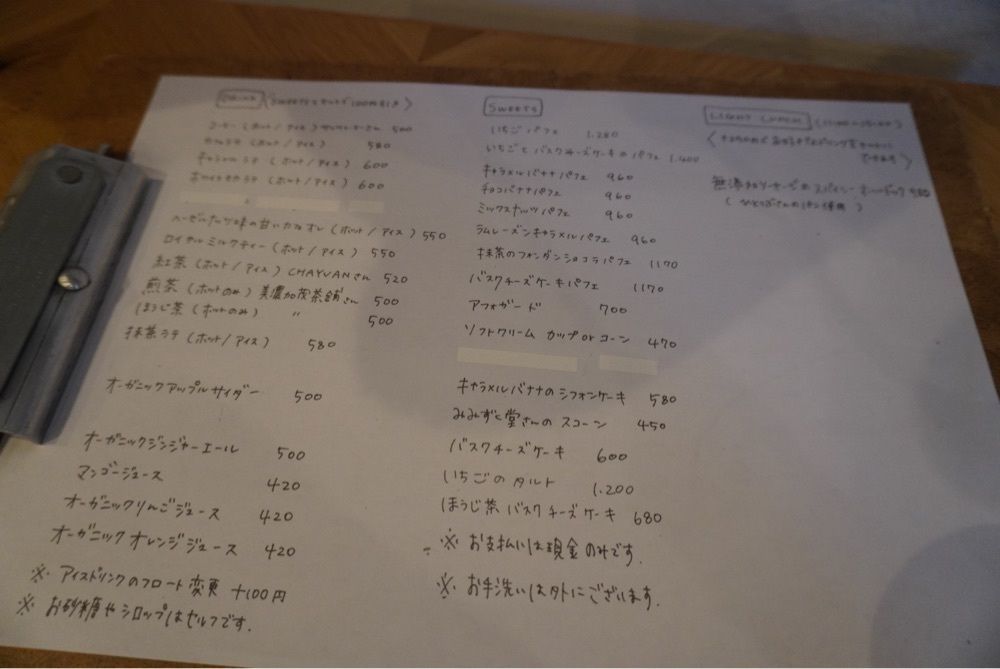 DRINK 〈SWEETSとセットで100円引き〉
コーヒー (ホット/アイス) 500
カフェラテ (ホット/アイス) 580
キャラメルラテ (ホット/アイス) 600
ホワイトモカラテ (ホット/アイス) 600
ヘーゼルナッツ味の甘いカフェオレ (ホット/アイス) 550
ロイヤルミルクティー (ホット/アイス) 550
紅茶 (ホット/アイス) CHAYUANさん 520
煎茶 (ホットのみ) 美濃加茂茶舗さん 500
ほうじ茶 (ホットのみ) 〃 500
抹茶ラテ (ホット/アイス) 580
オーガニックアップルサイダー 500
オーガニックジンジャーエール 500
マンゴージュース 420
オーガニックりんごジュース 420
オーガニックオレンジジュース 420
※ アイスドリンクのフロート変更 +100円
※ お砂糖やシロップはセルフです.
SWEETS
いちごパフェ 1.280
いちごとバスクチーズケーキのパフェ 1.400
キャラメルバナナパフェ 960
チョコバナナパフェ 960
ミックスナッツパフェ 960
ラムレーズンキャラメルパフェ 960
抹茶のフォンダンショコラパフェ 1170
バスクチーズケーキパフェ 1170
アフォガード 700
ソフトクリーム カップorコーン 470
キャラメルバナナのシフォンケーキ 580
みみずく堂さんのスコーン 450
バスクチーズケーキ 600
いちごのタルト 1.200
ほうじ茶バスクチーズケーキ 680
※ お支払いは現金のみです.
※ お手洗いは外にございます.
LIGHT LUNCH
できます〉
無添加ソーセージのスパイシーホットドッグ